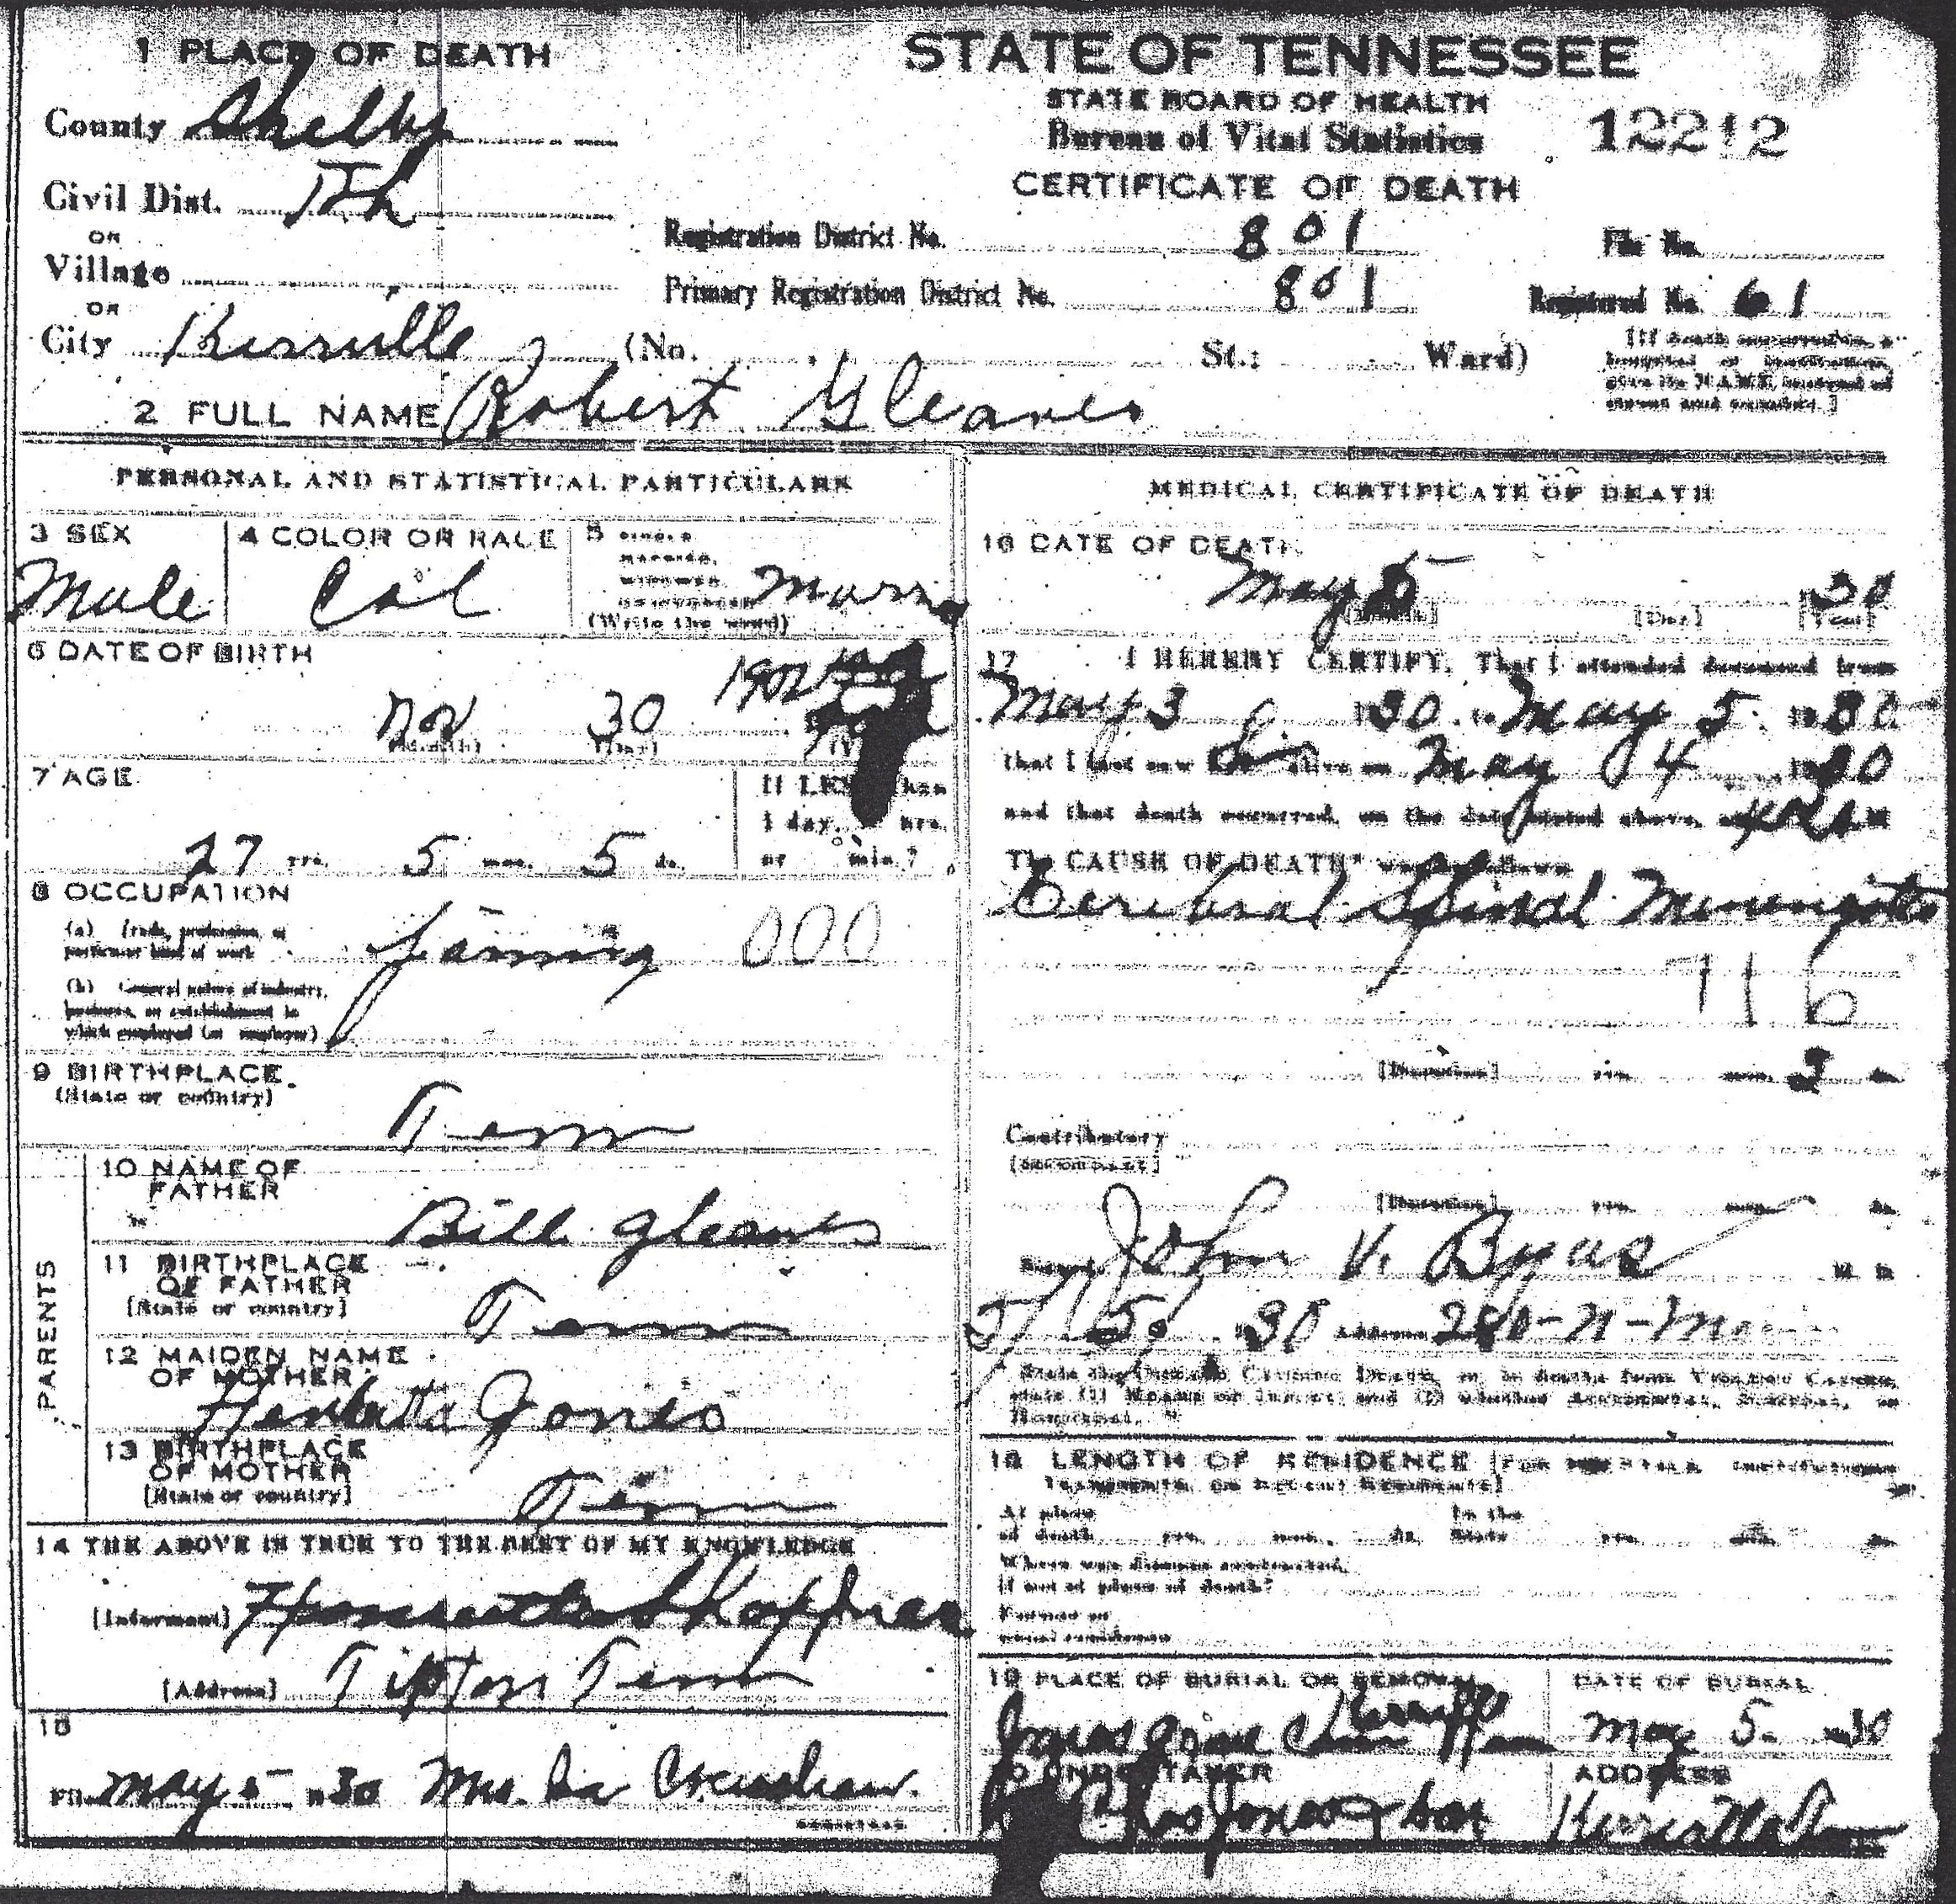 1 PLACE OF DEATH
County Shelby
Civil Dist. 1st
OR
Village
OR
City Kerrville (No. St.; Ward)
STATE OF TENNESSEE
STATE BOARD OF HEALTH
Bureau of Vital Statistics
CERTIFICATE OF DEATH
12212
Registration District No. 801 File No.
Primary Registration District No. 801 Registered No. 61
[If death occurred in a
hospital or institution,
give its NAME instead of
street and number.]
2 FULL NAME Robert Gleaves
PERSONAL AND STATISTICAL PARTICULARS
3 SEX
Male
4 COLOR OR RACE
Col
5 SINGLE
MARRIED,
WIDOWED
OR DIVORCED
(Write the word)
6 DATE OF BIRTH
Nov 30 1902
(Month) (Day)
7 AGE
27 yrs. 5 mos. 5 ds.
If LESS than
1 day, hrs.
or min.?
8 OCCUPATION
(a) Trade, profession, or
particular kind of work
farming 000
(b) General nature of industry,
business, or establishment in
which employed (or employer)
9 BIRTHPLACE
(State or country)
Tenn
PARENTS
10 NAME OF
FATHER
Bill Gleaves
11 BIRTHPLACE
OF FATHER
[State or country]
Tenn
12 MAIDEN NAME
OF MOTHER
Jones
13 BIRTHPLACE
OF MOTHER
[State or country]
Tenn
14 THE ABOVE IS TRUE TO THE BEST OF MY KNOWLEDGE
[Informant]
[Address] Tipton Tenn
15
Filed May 5 1930 Mrs. Crenshaw
REGISTRAR
MEDICAL CERTIFICATE OF DEATH
16 DATE OF DEATH
May 5 30
[Month] [Day] [Year]
17 I HEREBY CERTIFY, That I attended deceased from
May 3 1930 to May 5 1930
that I last saw alive on May 4 1930
and that death occurred, on the date stated above, at
The CAUSE OF DEATH* was as follows
Cerebral Spinal Meningitis
[Duration] yrs. mos. 3 ds.
Contributory
[SECONDARY]
[Duration] yrs. mos. ds.
Signed John V. Byas M. D.
5/5, 1930 Address
State the Disease Causing Death, or in deaths from Violent Causes,
state (1) Means of Injury; and (2) whether Accidental, Suicidal, or
Homicidal.
18 LENGTH OF RESIDENCE [For Hospitals, Institutions,
Transients, or Recent Residents]
At place
of death yrs. mos. ds. In the
State yrs. mos. ds.
Where was disease contracted,
if not at place of death?
Former or
usual residence
19 PLACE OF BURIAL OR REMOVAL
DATE OF BURIAL
May 5 1930
20 UNDERTAKER
ADDRESS
Kerrville